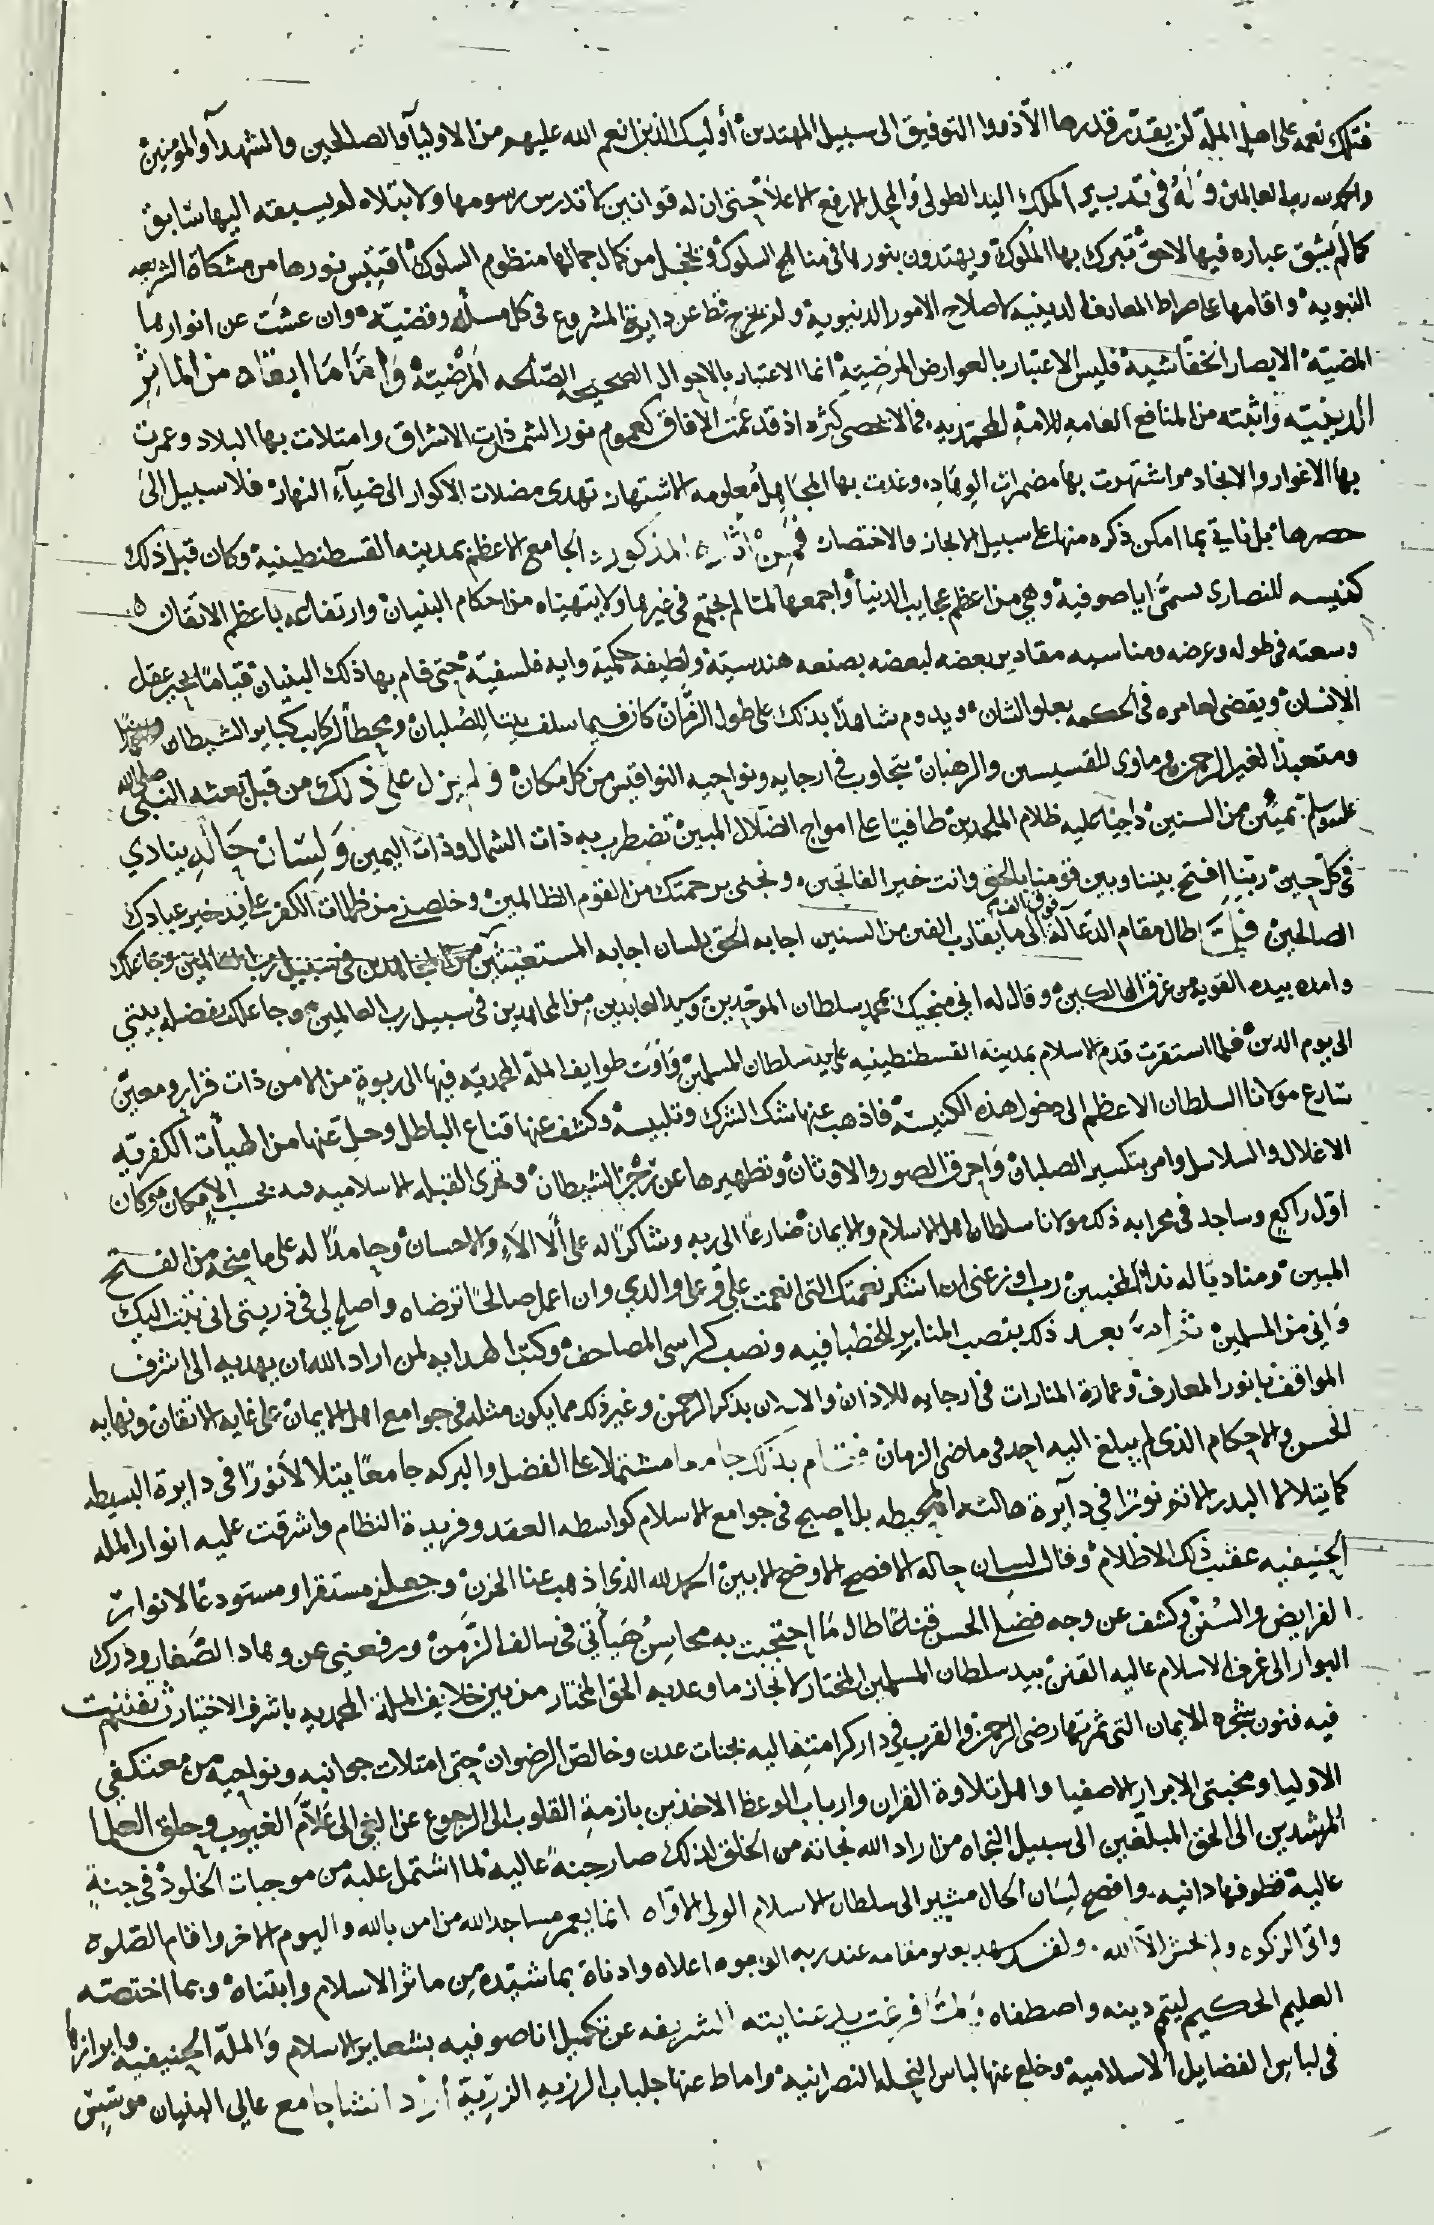 فتلك نعمه على اهل الملة لن يقدر قدرها الا ذووا التوفيق الى سبيل المهتدين أوليك الذين انعم الله عليهم من الاوليآ والصالحين والشهدآ والمومنين
والحمد لله رب العالمين وله في تدبير الملك اليد الطولى والمحل الارفع الاعلا حتى ان له قوانين لا تدرس رسومها ولا تبتلاه لم يسبقه اليها سابق
كما لم يشق غباره فيها لاحق تتبرك بها الملوك ويهتدون بنورها في مناهج السلوك ويخجل من كمال جمالها منظوم السلوك اقتبس نورها من مشكاة الشريعه
النبويه واقامها على صراط المعارف الدينيه لاصلاح الامور الدنيوية ولم يخرج قط عن دايرة المشروع في كل مسألة وقضيّة وان عشت عن انوارها
المضيّة الابصار الخفاشية فليس الاعتبار بالعوارض المرضية انما الاعتبار بالاحوال الصحيحه الصالحه المرضيّة وَامّا مَا ابقاه من الماثر
الدينيّه واثبته من المنافع العامه للامة المحمديه فمما لا يحصى كثره اذ قد عمت الافاق كعموم نور الشمس ذات الاشراق وامتلات بها البلاد وعمرت
بها الاغوار والانجاد واشتهرت بها مضمرات الوهاد وغدت بها المجاهل معلومه الاشتهار تهدى مضلات الاكوار الى ضياء النهار فلا سبيل الى
حصرها بل ناتي بما امكن ذكره منها على سبيل الايجاز والاختصار فمن اثاره المذكوره الجامع الاعظم بمدينه القسطنطينية وكان قبل ذلك
كنيسه للنصارى تسمّى اياصوفية وهي من اعظم عجايب الدنيا واجمعها لما لم يجتمع في غيرها ولا يتهياه من احكام البنيان وارتفاعه باعظم الاتقان
وسعته في طوله وعرضه ومناسبه مقادير بعضه لبعضه بصنعه هندسيّة ولطيفه حكمية وايه فلسفيّة حتى قام بها ذلك البنيان قيامًا يحير عقل
الانسان ويقضى لعامره في الحكمه بعلو الشان ويدوم شاهدًا بذلك على طول الزمان كان فيما سلف بيتا للصلبان ومحطا لركايب كبار الشيطان
ومتعبدًا لغير الرحمن وماوى للقسيسين والرهبان يتجاوب في ارجايه ونواحيه النواقيس من كل مكان ولم يزل على ذلك من قبل بعثه النبي صلى الله
عليه وسلم بمئين من السنين داجيًا عليه ظلام الملحدين طافيًا على امواج الضلال المبين تضطرب به ذات الشمال وذات اليمين وَلِسَان حَاله ينادي
في كل حين ربّنا افتح بيننا وبين قومنا بالحق وانت خير الفاتحين ونجنى برحمتك من القوم الظالمين وخلصنى من ظلمات الكفر على يد خير عبادك
الصالحين فلمّا طال مقام الدعآ له الى ما يقارب الفين من السنين اجابه الحق بلسان اجابه المستغيثين
وامده بيده القوية من غرق الهالكين وقال له اني منجيك بمحمد سلطان الموحّدين وسيد العابدين من المجاهدين في سبيل رب العالمين وجاعلك بفضله بيتي
الى يوم الدين فلما استقرت قدم الاسلام بمدينه القسطنطينيه على يد سلطان المسلمين وَأوَت طوايف الملّة المحمديّه فيها الى ربوةٍ من الامن ذات قرار ومعين
سَارع مولانا السلطان الاعظم الى دخول هذه الكنيسَة فاذهب عنها شك الشرك وتلبيسه وكشف عنها قناع الباطل وحل عنها من الهيآت الكفريّه
الاغلال والسلاسل وامر بتكسير الصلبان وَاحرق الصور والاوثان وتطهيرها عن رجز الشيطان وتحرى القبله الاسلاميه فيه بحسب الإمكان وكان
اوّل راكع وساجد في محرابه ذلك مولانا سلطان اهل الاسلام والايمان ضارعًا الى ربه وشاكرًا له على ألّا الآلاءِ والاحسان وحامدًا له على ما منحه من الفتح
المبين ومناديًا له ندا المخبتين رب اوزعني ان اشكر نعمتك التي انعمت علي وعلى والدي وان اعمل صالحًا ترضاه واصلح لي في ذريتي اني تبت اليك
وَاني من المسلمين ثم امر بعد ذلك بنصب المنابر للخطبا فيه ونصب كراسى المصاحف وكتب الهدايه لمن اراد الله ان يهديه الى اشرف
المواقف بانور المعارف وعمارة المنارات في ارجايه للاذان والاعلان بذكر الرحمن وغير ذلك مما يكون مثله في جوامع اهل الايمان على غايه الاتقان ونهايه
الحسن والاحكام الذى لم يبلغ اليه احد في ماضى الزمان فقام بذلك جامعا مشتملا على الفضل والبركه جامعًا يتلالأ نورًا في دايرة البسيطه
كما يتلالا البدر الاتم نورًا في دآيرة هالته المحيطه بل اصبح في جوامع الاسلام كواسطه العقد وفريدة النظام واشرقت عليه انوار المله
الحنيفيه عقيب ذلك الاظلام وقال لسان حاله الافصح الاوضح الابين الحمد لله الذي اذهب عنا الحزن وجعلنى مستقرا ومستودعًا لانوار
الفرايض والسنن وكشف عن وجه فضلي الحسن قناعًا طال مَا احتجبت به محاسنُ هيأتي في سالف الزمن ورفعني عن وهاد الصّغار ودرك
البوار الى غرف الاسلام عاليه القنن بيد سلطان المسلمين المختار لانجاز ما وعد به الحق المختار من بين خلايف الملة المحمديه باشرف الاختيار ثم تفننت
فيه فنون شجره الايمان التي ثمرتها رضى الرحمن والقرب في دار كرامته اليه بجنات عدن وخالص الرضوان حتى امتلات جوانبه ونواحيه من معتكفي
الاوليا ومخبتى الابرار الاصفيا واهل تلاوة القران وارباب الوعظ الاخذين بازمة القلوب الى الرجوع عن الغي الى علّام الغيوب وحلق العلما
المرشدين الى الحق المبلغين الى سبيل النجاه من اراد الله نجاته من الخلق لذلك صار جنةً عالية لما اشتمل عليه من موجبات الخلود في جنةٍ
عالية قطوفها دانيه. وافصح لسَان الحال مشير الى سلطان الاسلام الولى الاوّاه انما يعمر مساجد الله من امن بالله واليوم الاخر واقام الصّلوه
واتى الزكوه ولم يخش الا الله. ولقد شهد بعلو مقامه عند ربه الوجوه اعلاه وادناه بما شيّده من ماثر الاسلام وابتناه وبما اختصّه
العليم الحكيم ليتم دينه واصطفاه ولمّا فرغت يد عنايته الشريفه عن تكميل اياصوفيه بشعاير الاسلام وَالملّه الحنيفيه وابرازها
في لباس الفضايل الاسلامية وخلع عنها لباس النحله النصرانية واماط عنها جلباب الرزيه الزريّة اراد انشا جامع عالي البنيان موسّس